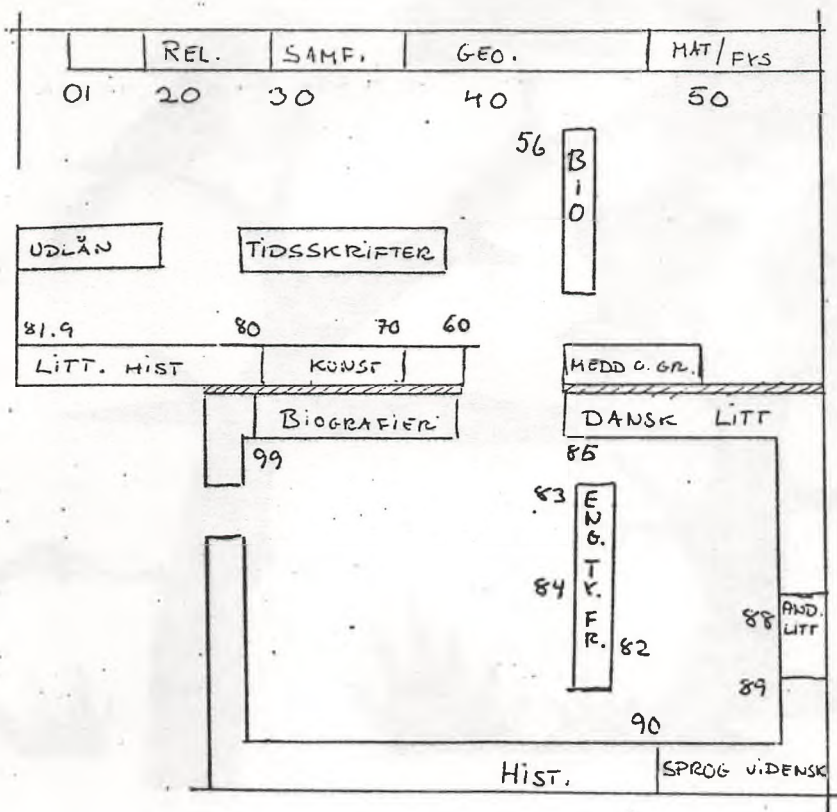 REL. SAMF. GEO. MAT/FYS
01 20 30 40 50
56 BIO
UDLÅN TIDSSKRIFTER
81.9 80 70 60
LITT. HIST KUNST MEDD O. GR.
BIOGRAFIER DANSK LITT
99 85
83 ENG. TY. FR.
84
82
88 AND. LITT
89
90
HIST. SPROG VIDENSK